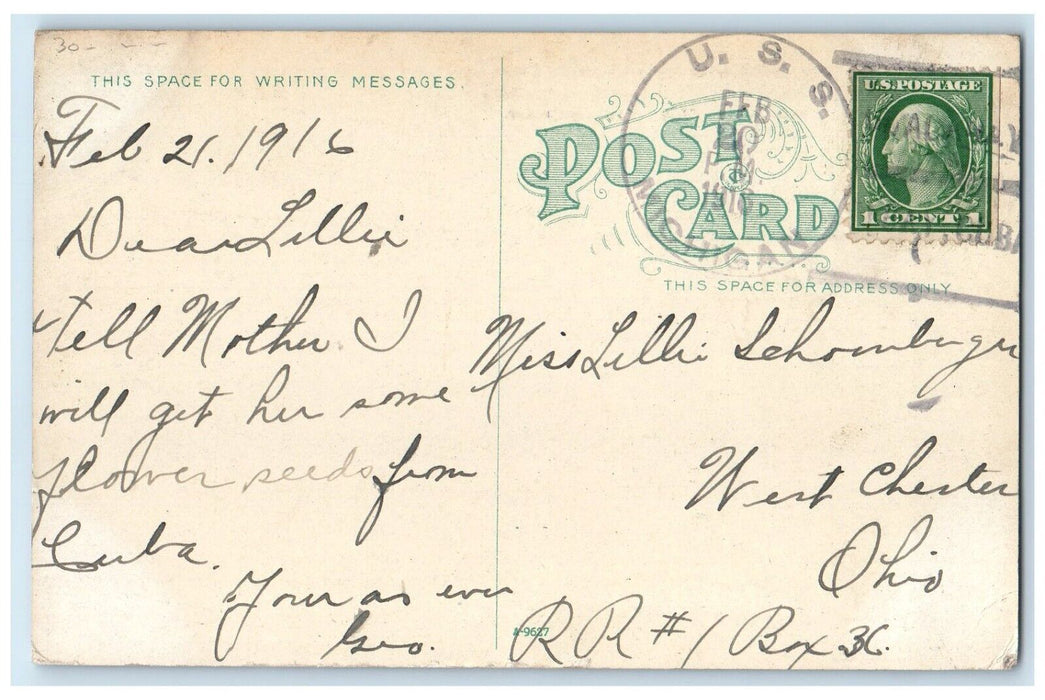 30-
THIS SPACE FOR WRITING MESSAGES.
Feb 21. 1916
Dear Lillie
Tell Mother I
will get her some
flower seeds from
Cuba.
Your as ever
Geo.
POST
CARD
THIS SPACE FOR ADDRESS ONLY
U. S. S.
MICHIGAN
FEB
P M
U.S. POSTAGE
1 CENT 1
Miss Lillie Schomberger
West Chester
Ohio
RR #1 Box 36.
A-9627